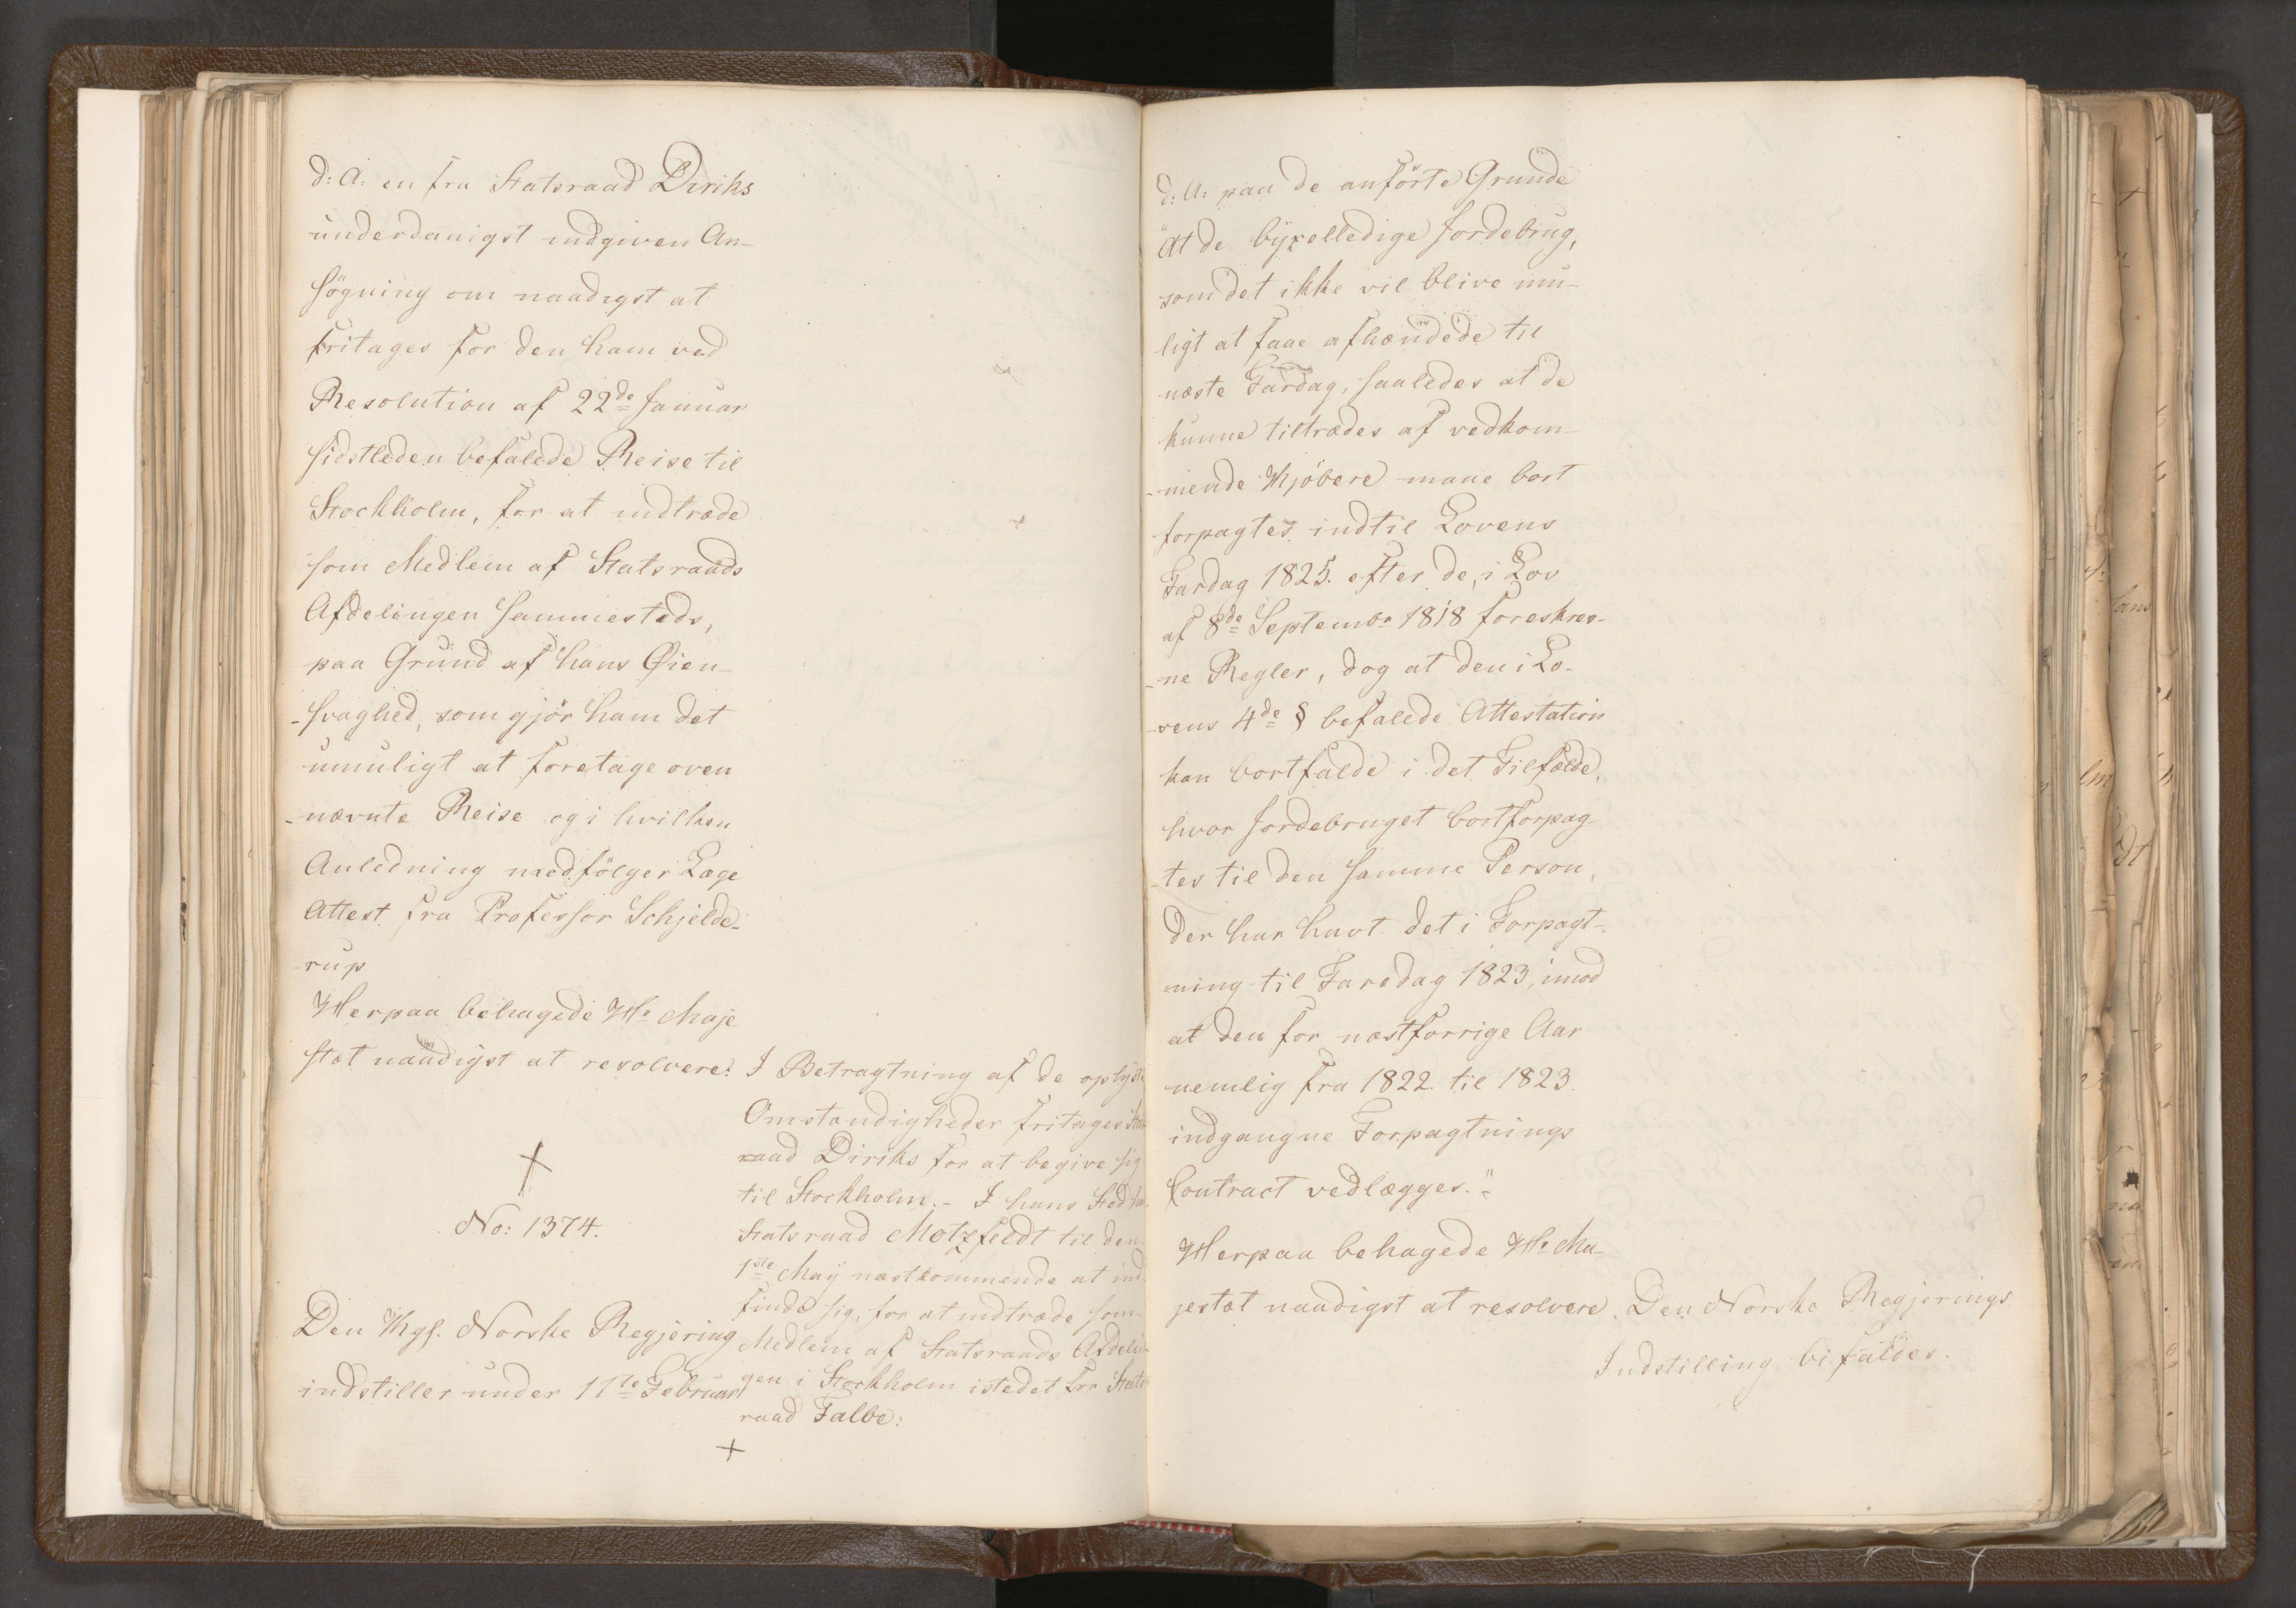 d: A: en fra Statsraad Diriks
underdanigst indgiven An-
søgning om naadigst at
fritages for den ham ved
Resolution af 22de Januar
sidstleden befalede Reise til
Stockholm, for at indtræde
som Medlem af Statsraads
Afdelingen sammesteds,
paa Grund af hans Øien-
-svaghed, som gjör ham det
umuligt at foretage oven
-nævnte Reise og i hvilken
Anledning medfölger Læge
Attest fra Professor Schjelde-
rup
Herpaa behagede Hs Maje
stæt naadigst at resolvere:
I Betragtning af de oplyste
Omstændigheder fritages Stats-
raad Diriks for at begive sig
til Stockholm. - I hans Sted har
Statsraad Motzfeldt til den
1ste Maÿ næstkommende at ind-
finde sig, for at indtræde som
Medlem af Statsraads Afdelin-
gen i Stockholm istedet for Stats-
raad Falbe:
No: 1374.
Den Kgl. Norske Regjering
indstiller under 11te Februar
d: A: paa de anförte Grunde
"At de bÿxelledige Jordebrug,
som det ikke vil blive mu-
ligt at faae afhændede til
næste Fardag, saaledes at de
kunne tiltrædes af vedkom-
-mende Kjöbere maae bort
forpagtes indtil Lovens
Fardag 1825. efter de, i Lov
af 8de Septembr 1818 foreskrev-
-ne Regler, dog at den i Lo-
-vens 4de § befalede Attestation
kan bortfalde i det Tilfælde,
hvor Jordebruget bortforpag-
-tes til den samme Person,
der har havt det i Forpagt-
-ning til Faredag 1823, imod
at den for næstforrige Aar
nemlig fra 1822 til 1823.
indgangne Forpagtnings
Contract vedlægges."
Herpaa behagede Hs Ma-
jestæt naadigst at resolvere. Den Norske Regjerings
Indstilling bifaldes.